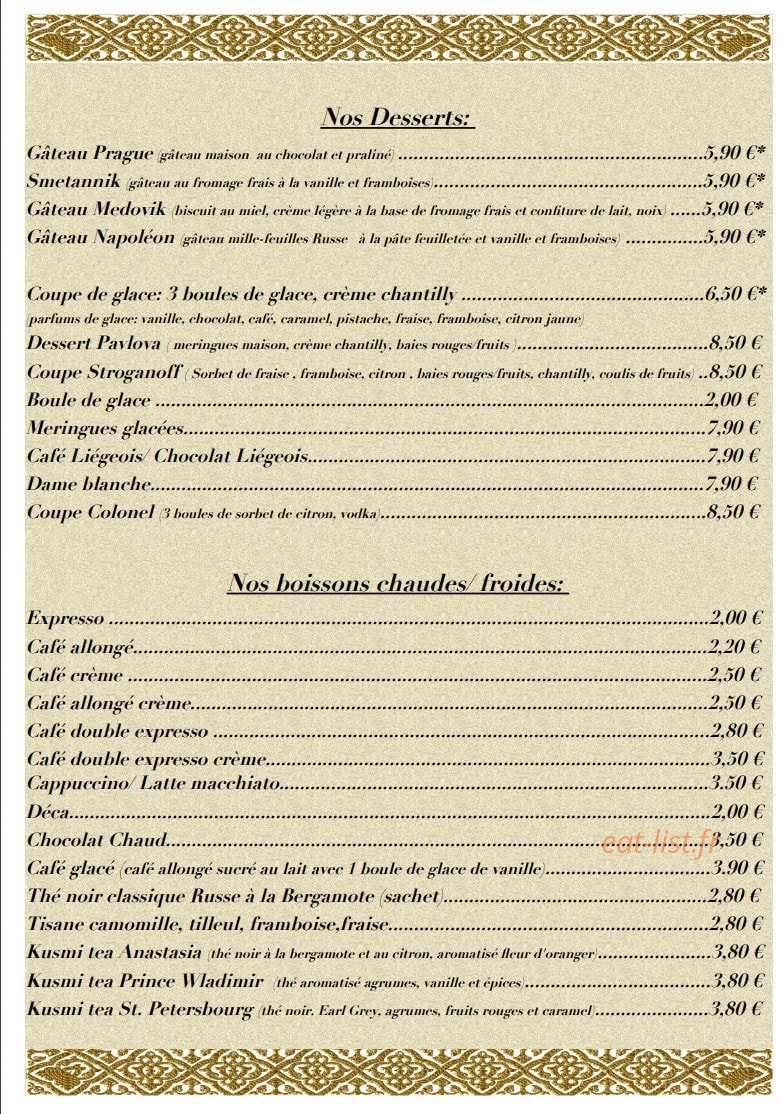 Nos Desserts:
Gâteau Prague (gâteau maison au chocolat et praliné) ............................................................5,90 €*
Smetannik (gâteau au fromage frais à la vanille et framboises).....................................................5,90 €*
Gâteau Medovik (biscuit au miel, crème légère à la base de fromage frais et confiture de lait, noix) ......5,90 €*
Gâteau Napoléon (gâteau mille-feuilles Russe à la pâte feuilletée et vanille et framboises) ...............5,90 €*
Coupe de glace: 3 boules de glace, crème chantilly ................................................6,50 €*
(parfums de glace: vanille, chocolat, café, caramel, pistache, fraise, framboise, citron jaune)
Dessert Pavlova ( meringues maison, crème chantilly, baies rouges/fruits )......................................8,50 €
Coupe Stroganoff ( Sorbet de fraise , framboise, citron , baies rouges/fruits, chantilly, coulis de fruits) ..8,50 €
Boule de glace ............................................................................................................2,00 €
Meringues glacées......................................................................................................7,90 €
Café Liégeois/ Chocolat Liégeois..............................................................................7,90 €
Dame blanche.............................................................................................................7,90 €
Coupe Colonel (3 boules de sorbet de citron, vodka)................................................................8,50 €
Nos boissons chaudes/ froides:
Expresso ......................................................................................................................2,00 €
Café allongé.................................................................................................................2,20 €
Café crème ..................................................................................................................2,50 €
Café allongé crème.....................................................................................................2,50 €
Café double expresso .................................................................................................2,80 €
Café double expresso crème.......................................................................................3,50 €
Cappuccino/ Latte macchiato....................................................................................3.50 €
Déca..............................................................................................................................2,00 €
Chocolat Chaud...........................................................................................................3,50 €
eat-list.fr
Café glacé (café allongé sucré au lait avec 1 boule de glace de vanille).................................3.90 €
Thé noir classique Russe à la Bergamote (sachet)....................................................2,80 €
Tisane camomille, tilleul, framboise,fraise...............................................................2,80 €
Kusmi tea Anastasia (thé noir à la bergamote et au citron, aromatisé fleur d'oranger)......................3,80 €
Kusmi tea Prince Wladimir (thé aromatisé agrumes, vanille et épices)....................................3,80 €
Kusmi tea St. Petersbourg (thé noir. Earl Grey, agrumes, fruits rouges et caramel)......................3,80 €